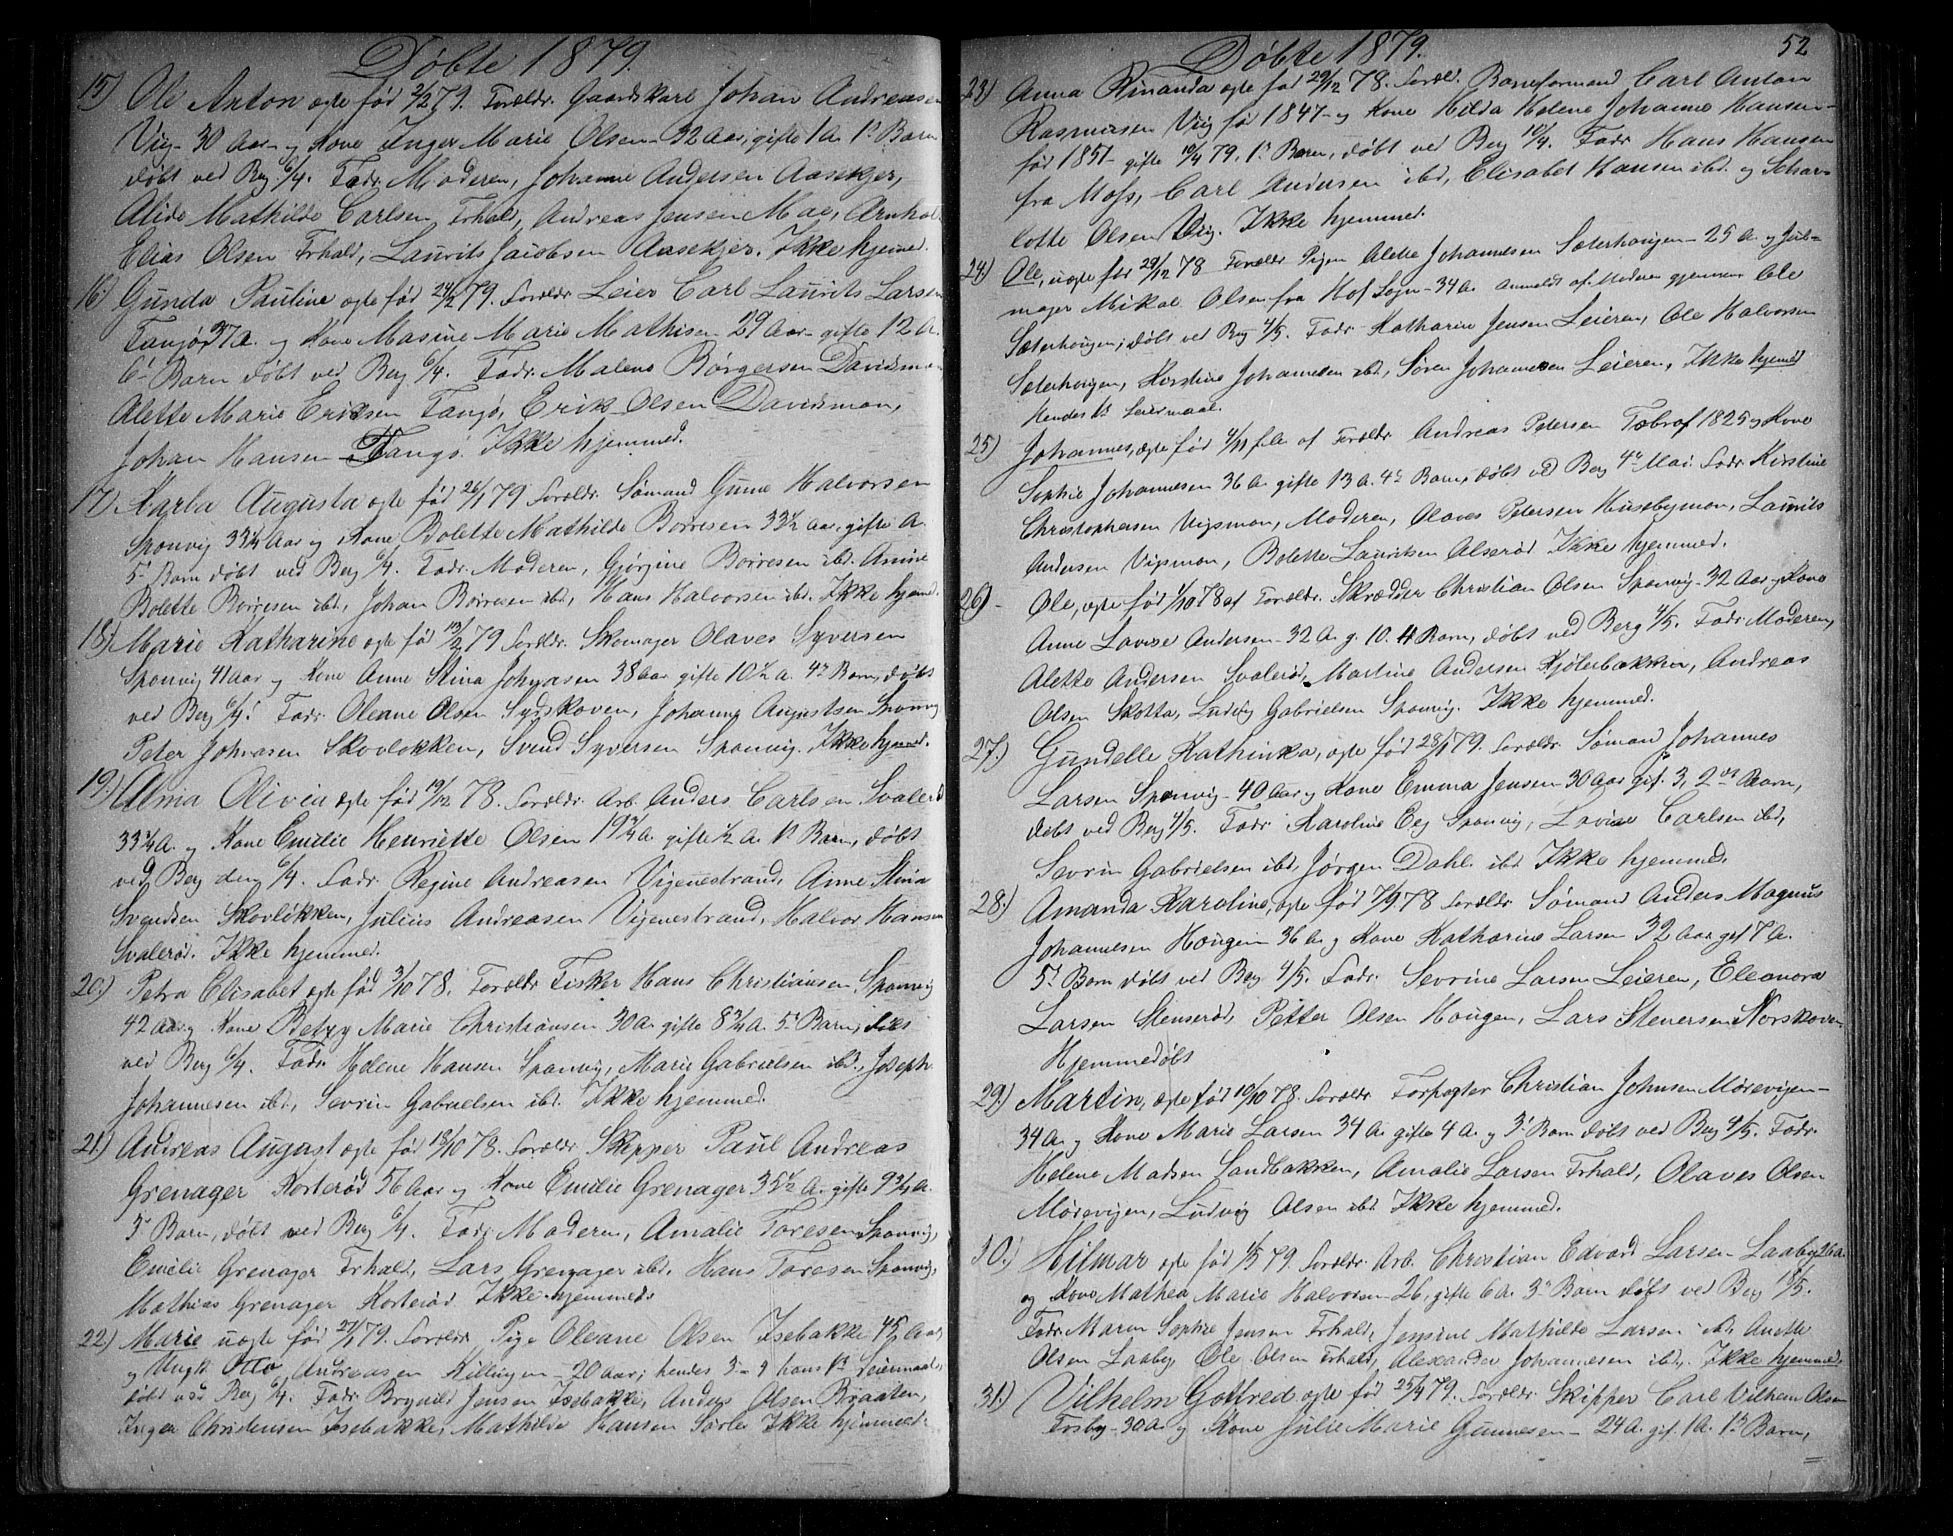 Døbte 1879.
15) Ole Anton ægte fød 2/2 79. Forældr. Gaardskarl Johan Andreasen
Viig 30 Aar og Kone Inger Marie Olsen 32 Aar, gifte 1 A. 1st Barn
døbt ved Berg 6/4. Fadr. Moderen, Johanne Andersen Aasekjer,
Alide Mathilde Carlsen Erhald, Andreas Jensen Moe, Arnholt
Elias Olsen Erhald, Laurits Jacobsen Aasekjer. Ikke hjemmed.
16) Gunda Pauline ægte fød 24/2 79. Forældr Leier Carl Laurits Larsen
Tangø 37 A. og Kone Masine Marie Mathisen 29 Aar gifte 12 A.
6t Barn døbt ved Berg 6/4. Fadr. Malene Børgersen Davidsmon
Alette Marie Eriksen Tangø, Erik Olsen Davidsmon,
Johan Hansen Tangø. Ikke hjemmed.
17) Karla Augusta ægte fød 26/1 79. Forældr. Sømand Gune Halvorsen
Sponvig 33 1/4 Aar og Kone Bolette Mathilde Børresen 33 1/2 Aar, gifte A.
5t Barn døbt ved Berg 6/4. Fadr. Moderen, Gjørgine Børresen ibd. Amine
Bolette Børresen ibd, Johan Børresen ibd, Hans Halvorsen ibd. Ikke hjemd.
18) Marie Katharine ægte fød 13/2 79 Forældr. Skomager Olaves Syversen
Sponvig 41 Aar og Kone Anne Stina Johnasen 38 Aar gifte 10 1/2 A. 4t Barn, døbt
ved Berg 6/4. Fadr. Oleane Olsen Sydskoven, Johanne Augustsen Sponvig
Peter Johnasen Skovløkken, Svend Syversen Sponvig. Ikke hjemd.
19) Alma Olivia ægte fød 19/12 78. Forældr. Arb. Anders Carlsen Svalerød
33 1/4 A. og Kone Emilie Henriette Olsen 19 3/4 A. gifte 1/2 A. 1t Barn, døbt
ved Berg den 6/4. Fadr. Regine Andreasen Vigenestrand, Anne Stina
Svendsen Skovløkken, Julius Andreasen Vigenestrand, Halvor Hansen
Svalerød. Ikke hjemmed.
20) Petra Elisabet ægte fød 3/10 78. Forældr Fisker Hans Christiansen Sponvig
42 Aar og Kone Betzy Marie Christiansen 30 A. gifte 8 3/4 A. 5t Barn, døbt
ved Berg 6/4. Fadr. Helene Hansen Sponvig, Marie Gabrielsen ibd., Joseph
Johannesen ibd, Sevrin Gabrielsen ibd. Ikke hjemmed.
21) Andreas August ægte fød 18/10 78. Forældr. Skipper Paul Andreas
Grenager Korterød 56 Aar og Kone Emilie Grenager 35 1/2 A. gifte 9 3/4 A.
5t Barn, døbt ved Berg 6/4. Fadr. Moderen, Amalie Toresen Sponvig,
Emilie Grenager Erhald, Lars Grenager ibd. Hans Toresen Sponvig,
Mathias Grenager Korterød Ikke hjemmed.
22) Marie uægte fød 27/1 79. Forældr Pige Oleane Olsen Isebakke
og Ungk. Otto Andreasen Killingen 20 aar, hendes 3 hans 1st Leiermaal,
døbt ved Berg 6/4. Fadr Brynild Jensen Isebakke, Anders Olsen Braaten,
Inger Christensen Isebakke, Mathilde Hansen Sørlie Ikke hjemmed.
52
Døbte 1879.
23) Anna Rinanda ægte fød 29/12 78. Forældr. Baneformand Carl Anton
Rasmussen Viig fød 1847 og Kone Hilda Helene Johanne Hansen
fød 1851 gifte 10/4 79. 1st Barn, døbt ved Berg 10/4. Fadr Hans Hansen
fra Moss, Carl Andersen ibd, Elisabet Hansen ibd. og Schar-
lotte Olsen Viig. Ikke hjemmed.
24) Ole, uægte fød 29/12 78 Forældr Pigen Alette Johannesen Sæterhougen 25 A. og Jul-
mager Mikal Olsen fra Hof Sogn 34 A. Anmeldt af Moderen gjennem Ole
Sæterhougen, døbt ved Berg 4/5. Fadr. Katharine Jensen Leieren, Ole Halvorsen
Sæterhougen, Kirstine Johannesen ibd., Søren Johannesen Leieren, Ikke hjemmed
Hendes 1st Leiermaal.
25) Johannes, ægte fød 4/11 f.A. af Forældr Andreas Petersen fød 1825 og Kone
Sophie Johannesen 36 A. gifte 13 A. 4t Barn, døbt ved Berg 4de Mai. Fadr. Kirstine
Christophersen Vigsmon, Moderen, Olaves Petersen Husebymon, Laurits
Andersen Vigsmon, Bolette Lauritsen Alserød Ikke hjemmed.
26) Ole, ægte fød 1/10 78 af Forældr. Skrædder Christian Olsen Sponvig 32 Aar og Kone
Anne Lovise Andersen 32 A. g. 10. 4 Barn, døbt ved Berg 4/5. Fadr. Moderen,
Alette Andersen Svalerød, Martine Andersen Kjølerbakken, Andreas
Olsen Skotta, Ludvig Gabrielsen Sponvig. Ikke hjemmed.
27) Gundelle Kathinka, ægte fød 28/1 79. Forældr. Sømand Johannes
Larsen Sponvig 40 Aar og Kone Emma Jensen 30 Aar gif. 3, 2det Barn,
døbt ved Berg 4/5. Fadr Karoline Eeg Sponvig, Lovise Carlsen ibd,
Sevrin Gabrielsen ibd, Jørgen Dahl ibd. Ikke hjemmed.
28) Amanda Karoline, ægte fød 7/9 78 Forældr Sømand Anders Magnus
Johannesen Hougen 36 A. og Kone Katharine Larsen 32 Aar gif 7 A.
5t Barn døbt ved Berg 4/5. Fadr. Sevrine Larsen Leieren, Eleonora
Larsen Stenserød, Petter Olsen Hougen, Lars Stenersen Norskoven
Hjemmedøbt
29) Martin, ægte fød 10/10 78. Forældr. Forpagter Christian Johnsen Mørevigen
34 A. og Kone Marie Larsen 34 A. gifte 4 A. og 3t Barn døbt ved Berg 4/5. Fadr.
Helene Madsen Sandbakken, Amalie Larsen Erhald, Olaves Olsen
Mørevigen, Ludvig Olsen ibd Ikke hjemmed.
30) Hilmar ægte fød 1/3 79. Forældr. Arb. Christian Edvard Larsen Laaby 26 A.
og Kone Mathea Marie Halvorsen 26, gifte 6 A. 3t Barn døbt ved Berg 18/5.
Fadr. Maren Sophie Jensen Erhald, Jensine Mathilde Larsen ibd. Anette
Olsen Laaby, Ole Olsen Erhald, Alexander Johannesen ibd. Ikke hjemmed.
31) Vilhelm Gotfred ægte fød 25/4 79. Forældr Skipper Carl Vilhelm Olsen
Torsby 30 A. og Kone Julie Marie Gunnesen 24 A. gif. 1 A. 1st Barn,